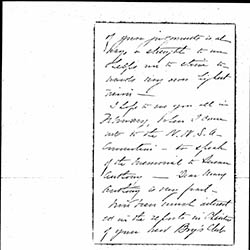 of your judgments is al-
ways a strength to me
helps me to strive to-
wards my own highest
I hope to see you all in
February, when I come
out to the N.W.S.A.
Convention — to speak
of the memorial to Susan
Anthony — Dear Mary
Anthony is very frail —
have been much interest
ed in the reports in
of your new Boy's Club